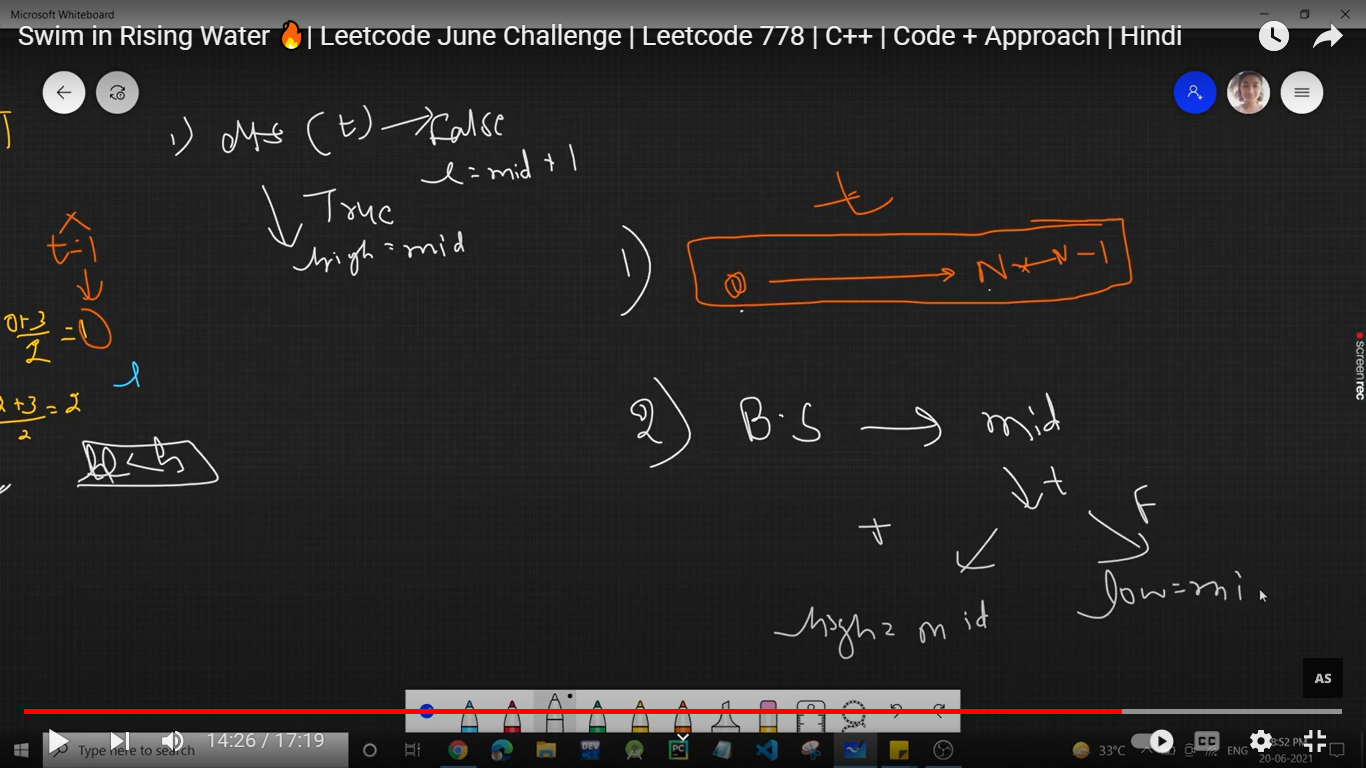 Microsoft Whiteboard
Swim in Rising Water 🔥| Leetcode June Challenge | Leetcode 778 | C++ | Code + Approach | Hindi
1) dfs (t) → False
l = mid + 1
True
high = mid
t
t=1
1) 0 → N*N-1
0+3/2 = 1
l
2+3/2 = 2
2) B.S → mid
l < h
t
F
t
low = mi
high = mid
screenrec
AS
14:26 / 17:19
Type here to search
DEV
PC
33°C
CC
ENG
8:52 PM
20-06-2021